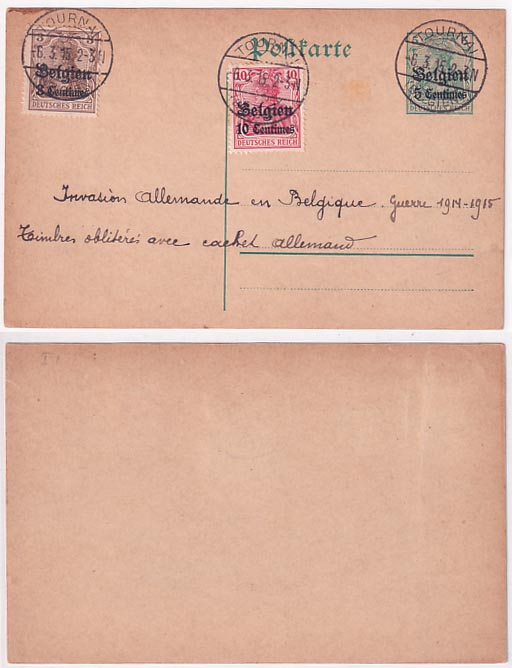 TOURNAI
6.3.15.2-3N
3
Belgien
3 Centimes
DEUTSCHES REICH
Postkarte
TOURNAI
15.2-3N
10 10
Belgien
10 Centimes
DEUTSCHES REICH
TOURNAI
6.3.15.2-3N
Belgien
5 Centimes
Invasion Allemande en Belgique. Guerre 1914-1915
Timbres oblitérés avec cachet allemand